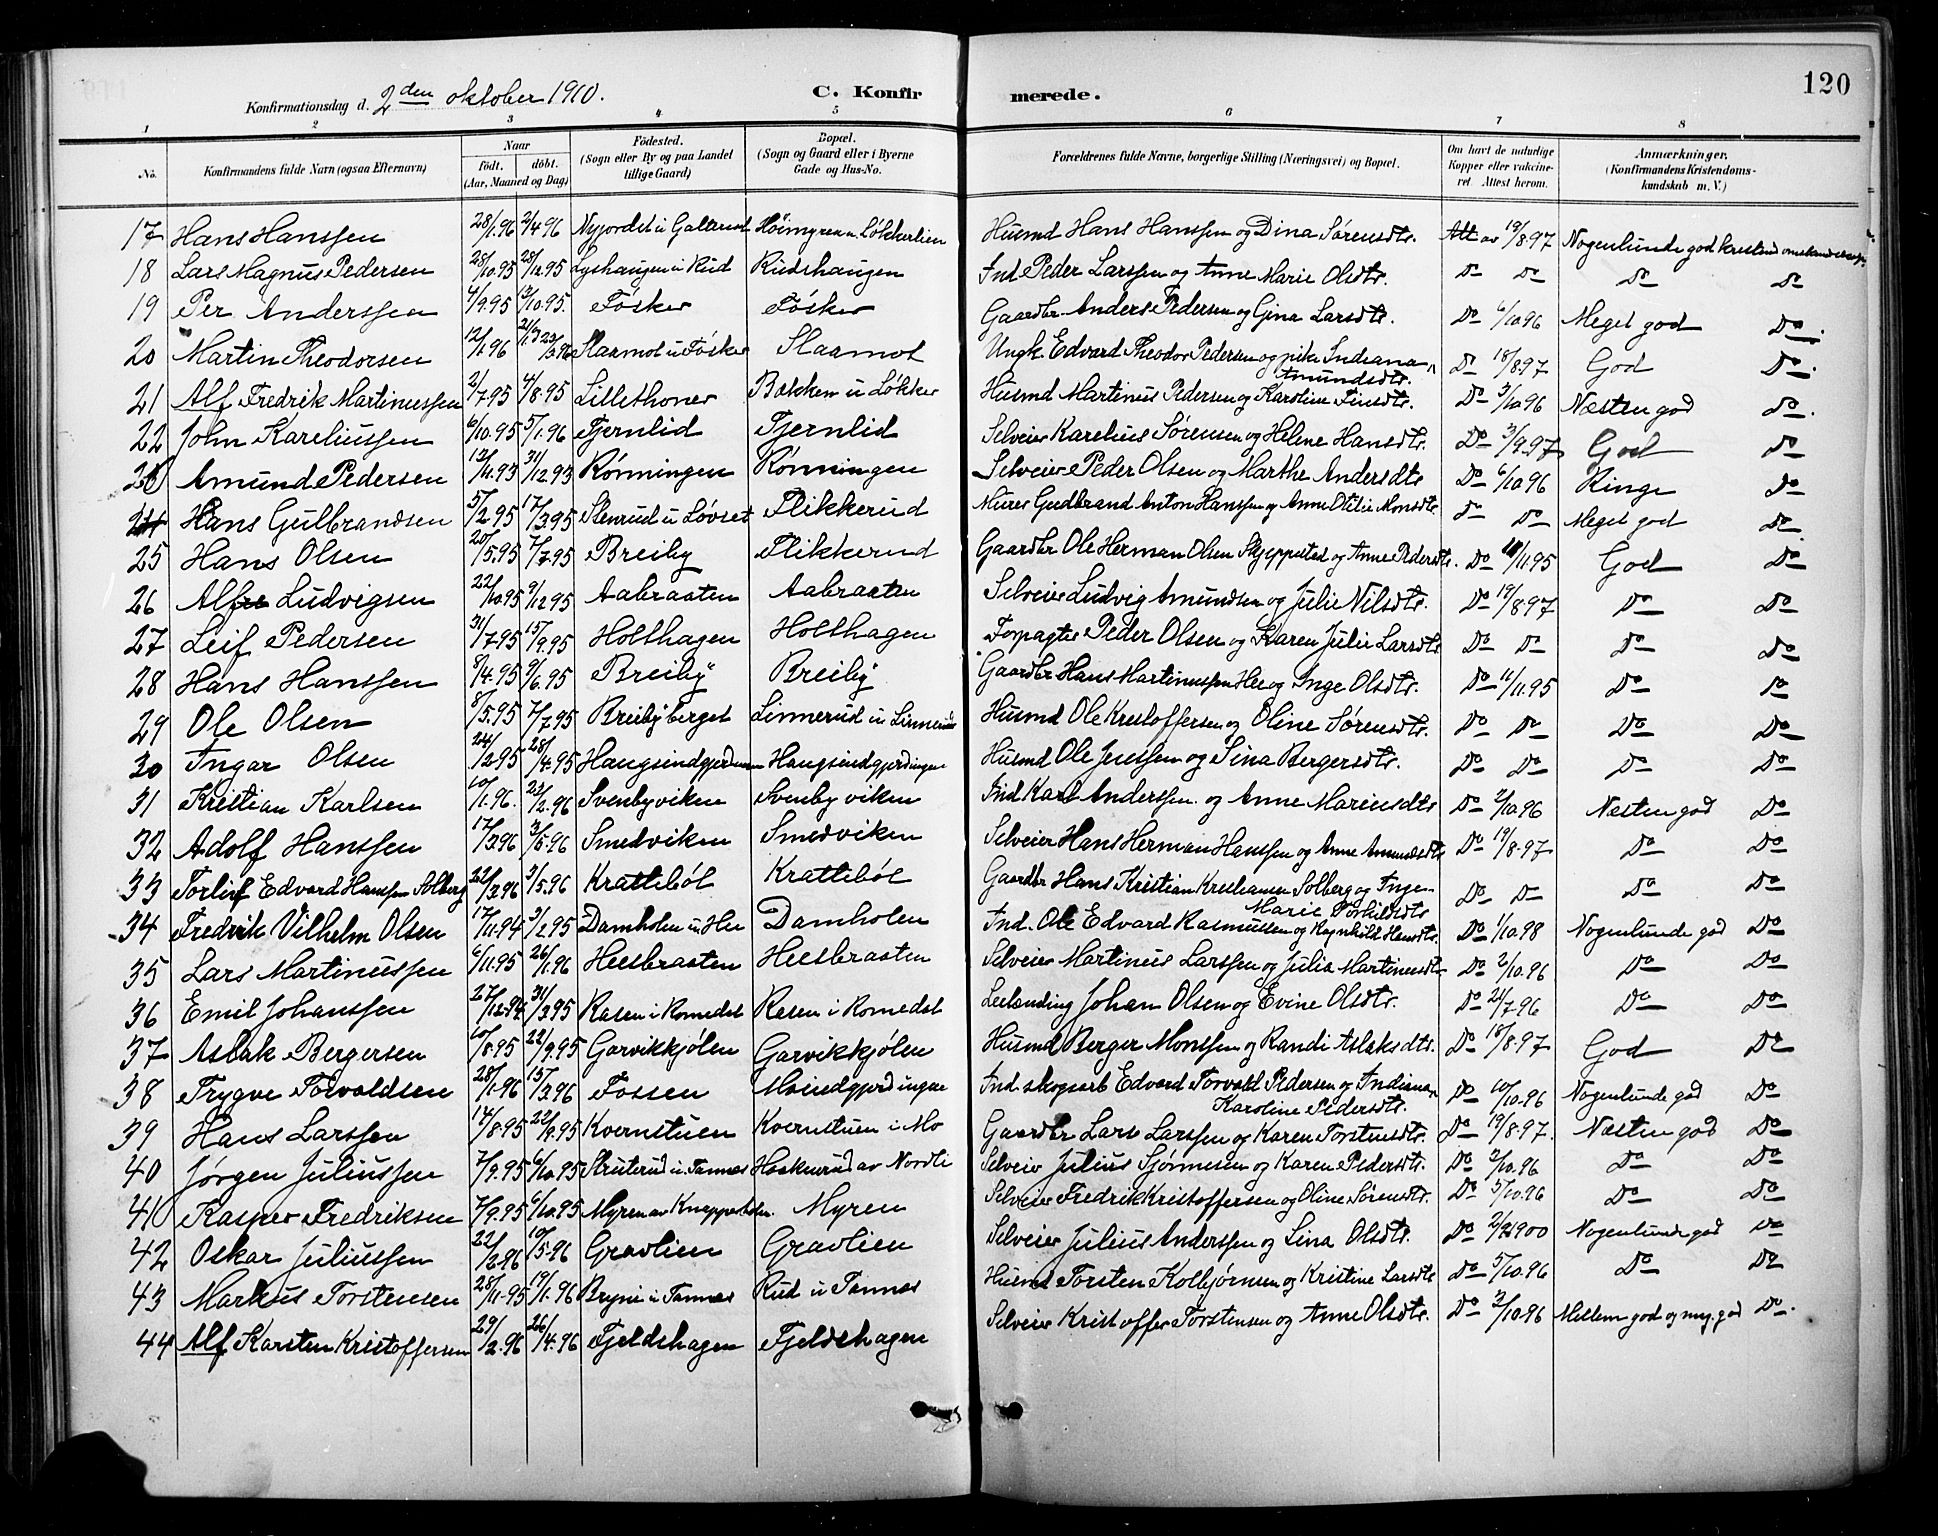 120
Konfirmationsdag d. 2den oktober 1910. C. Konfirmerede.
1 2 3 4 5 6 7 8
No. Konfirmandens fulde Navn (ogsaa Efternavn) Naar født. døbt. (Aar, Maaned og Dag) Fødested. (Sogn eller By og paa Landet tillige Gaard) Bopæl. (Sogn og Gaard eller i Byerne Gade og Hus-No. Forældrenes fulde Navne, borgerlige Stilling (Næringsvei) og Bopæl. Om havt de naturlige Kopper eller vakcineret. Attest herom. Anmærkninger. (Konfirmandens Kristendomskundskab m. V.)
17 Hans Hanssen 28/1.96 2/4 96 Nyjordet u Galterud Høimyren u. Løkkerlien Husmd Hans Hanssen og Dina Sørensdtr. Att av 19/8.97 Nogenlunde god
18 Lars Magnus Pedersen 28/10.95 28/12.95 Lyshaugen u Rud Rudshaugen Ind Peder Larssen og Anne Marie Olsdtr. Do Do Do Do
19 Per Anderssen 4/9.95 13/10.95. Fósker Fósker Gaardbr Anders Pedersen og Gina Larsdtr. Do 6/10.96 Meget god Do.
20 Martin Theodorsen 12/1.96 Slaamot u Fósker Slaamot Ungk. Edvard Theodor Pedersen og pike Indiana Amundsdtr. Do 18/8.97 God Do.
21 Alf Fredrik Martinussen 2/7.95 4/8.95 Lillethoner Bakken u Løkker Husmd Martinus Pedersen og Karoline Finsdtr. Do 3/10.96 Næsten god Do.
22 John Kareliussen 6/10.95 5/1.96 Tjernlid Tjernlid Selveier Karelius Sørensen og Helene Hansdtr. Do 3/9.97 God Do
23 Amund Pedersen 12/11.93 31/12.93 Rónningen Rónningen Selveier Peder Olsen og Marthe Andersdtr Do 6/10.96 Ringe Do
24 Hans Gulbrandsen 5/2.95 17/3.95 Stenrud u Lovset Flikkerud Murer Gudbrand Anton Hanssen og Anne Otilie Monsdtr. Do Do Meget god Do.
25 Hans Olsen 20/5.95 7/7.95 Breiby Flikkerud Gaardbr Ole Herman Olsen Skjeppested og Anne Pedersdtr. Do 11/11.95 God Do
26 Alf Ludvigsen 22/10.95 9/12.95 Aabraaten Aabraaten Selveier Ludvig Amundsen og Julie Nilsdtr. Do 19/8.97 Do Do
27 Leif Pedersen 31/7.95 15/9.95 Holthagen Holthagen Forpagter Peder Olsen og Karen Julie Larsdtr Do Do Do Do
28 Hans Hanssen 8/4.95 9/6.95 Breiby Breiby Gaardbr Hans Martinussen Hee og Inge Olsdtr. Do 11/11.95 Do Do
29 Ole Olsen 8/5.95 7/7.95 Breibyberget Linnerud u Linnerud Husmd Ole Kristoffersen og Oline Sørensdtr. Do Do Do Do
30 Ingar Olsen 24/2.95 28/4.95 Haugseindgjerdingen Haugseindgjerdingen Husmd Ole Jenssen og Sina Bergersdtr. Do Do Do Do
31 Kristian Karlsen 10/1.96. 23/2.96 Svenbyviken Svenbyviken Ind Karl Anderssen og Anne Mariusdtr Do 2/10.96 Næsten god Do
32 Adolf Hanssen 17/3.96 3/5.96 Smedviken Smedviken Selveier Hans Herman Hanssen og Anne Amundsdtr Do 19/8.97 Do Do
33 Torlief Edvard Hanssen Solberg 22/2.96 3/5.96 Kratteból Kratteból Gaardbr Hans Kristian Kristiansen Solberg og Inge Marie Torkildsdtr Do Do Do Do
34 Fredrik Vilhelm Olsen 17/11.94 3/2.95 Damholen u Hee Damholen Ind. Ole Edvard Rasmussen og Ragnhild Hansdtr. Do 1/10.98 Nogenlunde god Do
35 Lars Martinussen 6/11.95 26/1.96 Heesbraaten Heesbraaten Selveier Martinus Larssen og Julia Martinusdtr Do 2/10.96 Do Do
36 Emil Johanssen 27/12.94 31/3.95 Rasen i Romedal Rasen i Romedal Leilending Johan Olsen og Evine Olsdtr. Do 21/7.96 Do Do
37 Aslak Bergersen 10/8.95 22/9.95 Garvikkjølen Garvikkjølen Husmd Berger Monssen og Randi Aslaksdtr. Do 18/8.97 God Do
38 Trygve Torvaldsen 28/1.96 15/3.96 Fossen Moindgjerdingen Ind. skogsarb Edvard Torvald Pedersen og Indiana Karoline Pedersdtr. Do 10/10.96 Nogenlunde god Do
39 Hans Larssen 14/8.95 22/9.95 Kvernstuen Kvernstuen i Mo Gaardbr Lars Larssen og Karen Torstensdtr. Do 19/8.97. Næsten god Do
40 Jørgen Juliussen 7/9.95 6/10.95 Struterud u Tannes Haaknrud av Nordli Selveier Julius Sjørnesen og Karen Pedersdtr. Do 2/10.96 Do Do
41 Kasper Fredriksen 7/9.95 6/10.95 Myren av Knepperbølen. Myren Selveier Fredrik Kristoffersen og Oline Sørensdtr. Do 5/10.96 Do Do
42 Oskar Juliussen 22/2.96 10/5.96 Gravlien Gravlien Selveier Julius Anderssen og Lina Olsdtr. Do Nogenlunde god Do
43 Markus Torstensen 28/11.95 19/1.96 Bryni u Tannes Rud u Tannes Husmd Torsten Kolbjørnsen og Kristine Larsdtr Do 5/10.96 Do Do
44 Alf Karsten Kristoffersen 29/2.96 26/4.96 Fjeldshagen Fjeldshagen Selveier Kristoffer Torstensen og Anne Olsdtr. Do 3/10.96 Mellem god og meg. god Do.